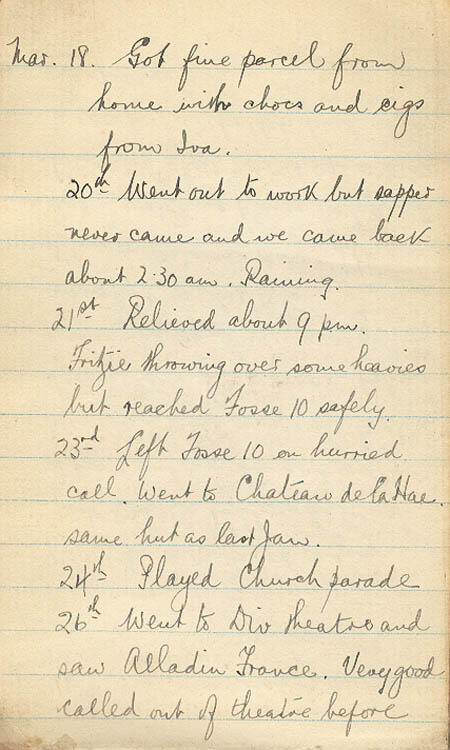 Mar. 18. Got fine parcel from
home with chocs and cigs
from Iva.
20th Went out to work but sapper
never came and we came back
about 2.30 am. Raining.
21st Relieved about 9 pm.
Fritzie throwing over some heavies
but reached Fosse 10 safely.
23rd Left Fosse 10 on hurried
call. Went to Chateau de la Hae.
same hut as last Jan.
24th Played Church parade
26th Went to Div theatre and
saw Alladin France. Very good
called out of theatre before